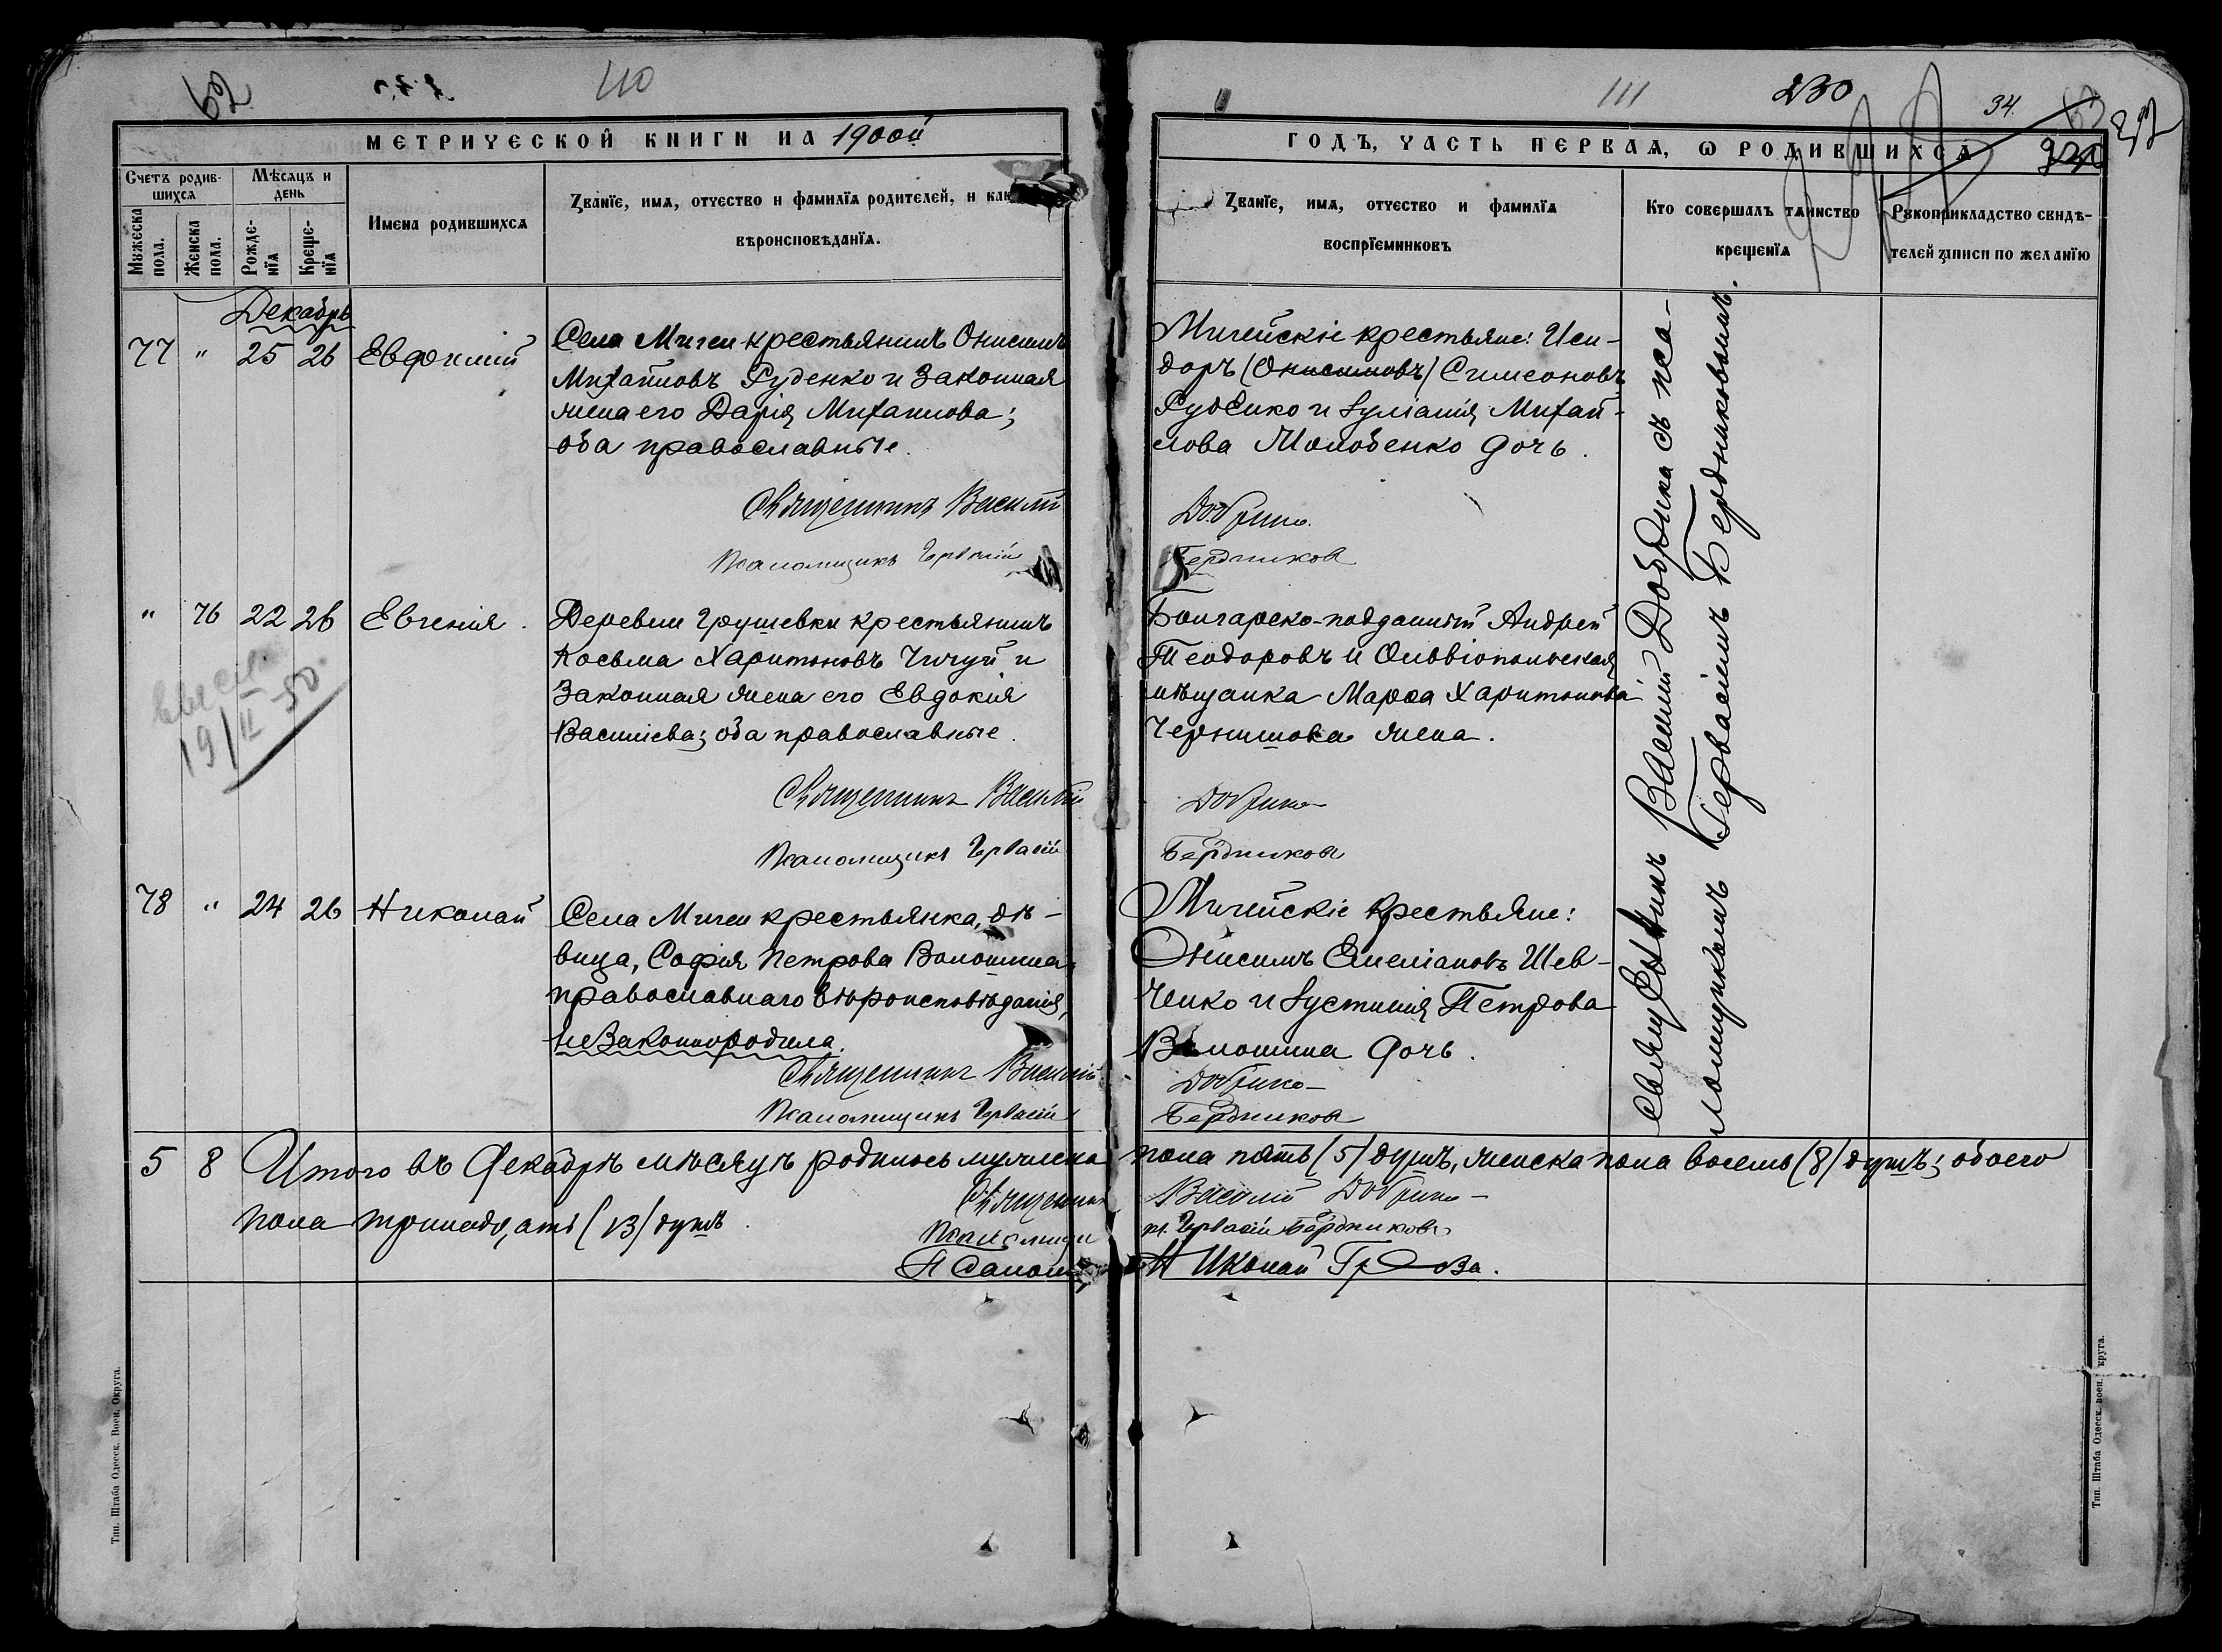 62
110
111
230
34.
МЕТРИЧЕСКОЙ КНИГИ НА 1900й
ГОДЪ, ЧАСТЬ ПЕРВАЯ, Ѡ РОДИВШИХСЯ
Счетъ родив-
шихся
Мѣсяцъ и
день
Мужеска
пола.
Женска
пола.
Рожде-
нїя
Креще-
нїя
Имена родившихся
Званїе, имя, отчество и фамилїя родителей, и как
вѣроисповѣданїя.
Званїе, имя, отчество и фамилїя
воспрїемниковъ
Кто совершалъ таинство
крещенїя
Рукоприкладство свидѣ-
телей записи по желанїю
Декабрь
77 " 25 26 Евфимий
Села Мигеи крестьянинъ Онисимъ
Михаиловъ Руденко и законная
жена его Дарія Михаилова;
оба православные.
Священникъ Василій
Псаломщикъ Гервасій
Мигейскіе крестьяне: Иси-
доръ (Онисимовъ) Симеоновъ
Руденко и Іуліанія Михаи-
лова Молоденко дочь.
Добрыно
Бердниковъ
" 76 22 26 Евгенія.
Деревни Грушевки крестьянинъ
Косьма Харитоновъ Чигуй и
законная жена его Евдокія
Василіева; оба православные.
Священникъ Василій
Псаломщикъ Гервасій
19/II 50
Болгарско-подданный Андрей
Теодоровъ и Ольвіопольская
мѣщанка Марѳа Харитонова
Чернышова жена.
Добрыно
Бердниковъ
78 " 24 26 Николай
Села Мигеи крестьянка, дѣ-
вица, Софія Петрова Волошина
православнаго вѣроисповѣданія,
незаконнородила.
Священникъ Василій
Псаломщикъ Гервасій
Мигейскіе крестьяне:
Онисимъ Емеліановъ Шев-
ченко и Іустинія Петрова
Волошина дочь.
Добрыно
Бердниковъ
Священникъ Василій с пса-
ломщикомъ Гервасіемъ Бердниковымъ.
5 8 Итого въ Декабрѣ мѣсяцѣ родилось мужеска пола пять (5) душъ, женска пола восемь (8) душъ; обоего
пола тринадцать (13) душъ.
Священникъ Василій Добрыно
Псаломщикъ Гервасій Бердниковъ
Николай
Тип. Штаба Одесск. Воен. Округа.
Тип. Штаба Одесск. воен. округа.